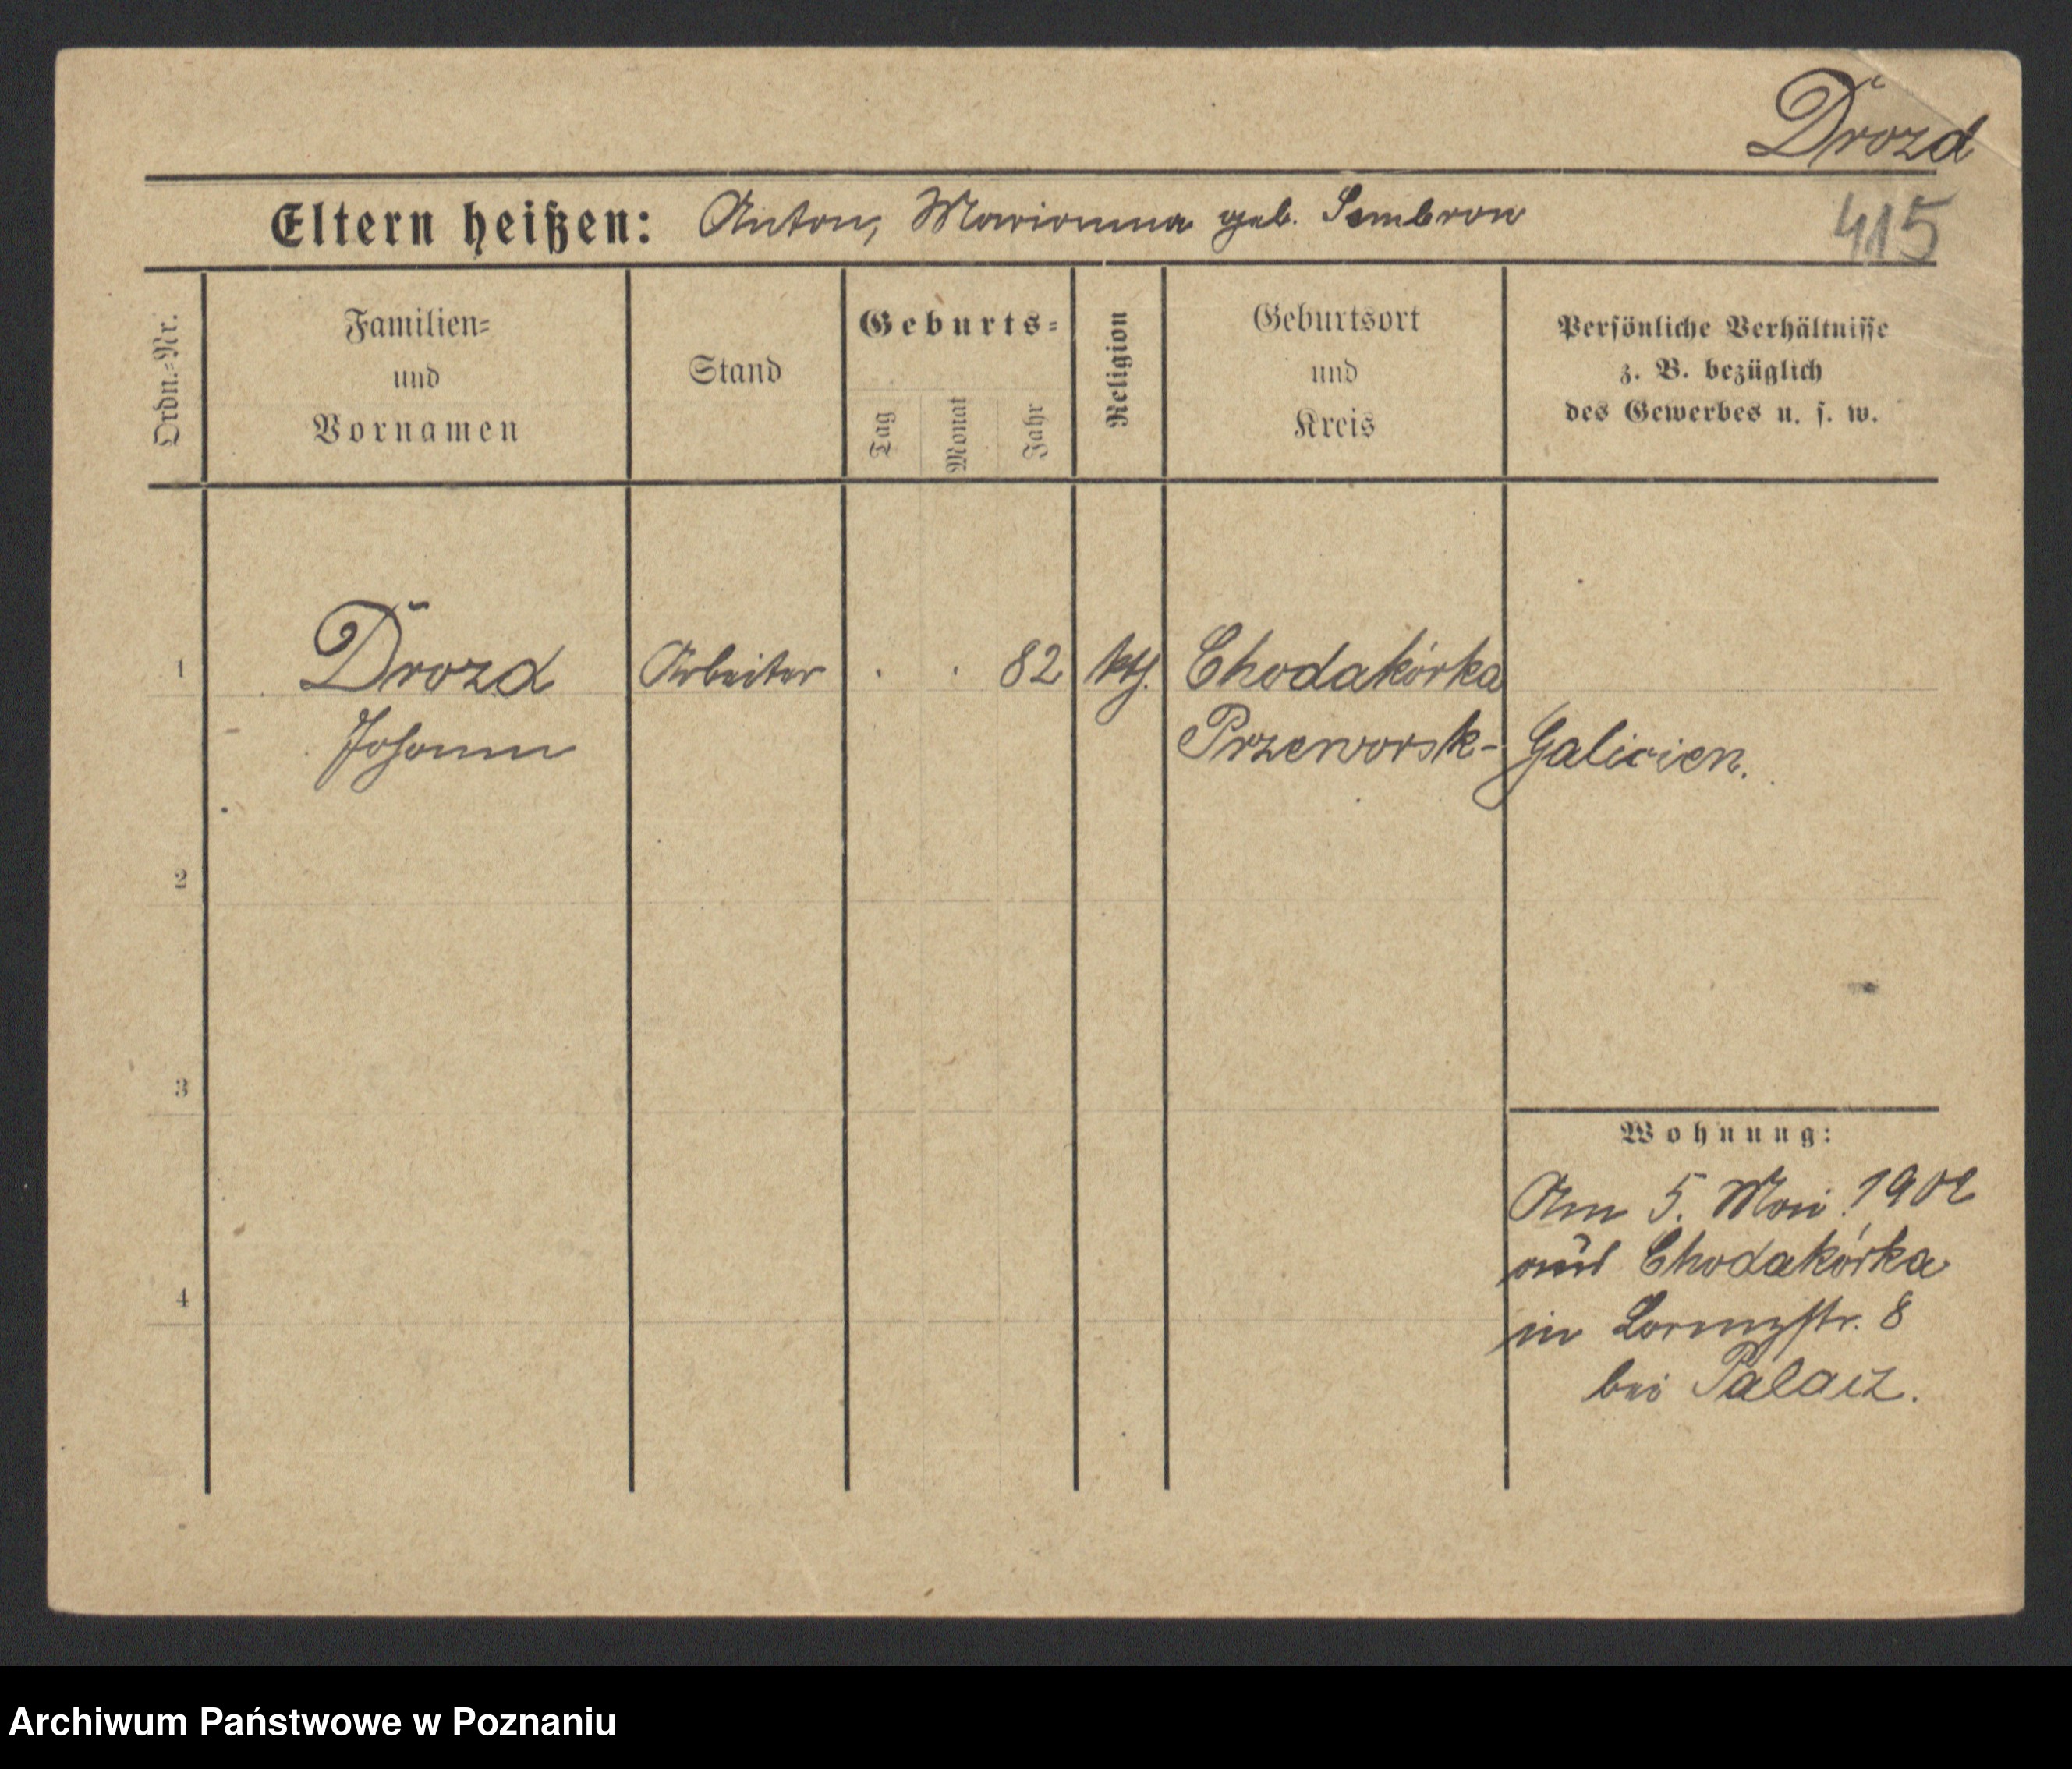 Drozd
Eltern heißen: Anton, Marianna geb. Sembron
415
Ordn.-Nr.
Familien-
und
Vornamen
Stand
Geburts-
Tag
Monat
Jahr
Religion
Geburtsort
und
Kreis
Persönliche Verhältnisse
z. B. bezüglich
des Gewerbes u. s. w.
1
Drozd Arbeiter . . 82 kth. Chodakórka
Johann Przeworsk- Galicien.
2
3
4
Wohnung:
Am 5. Mai 1902
aus Chodakórka
in Lorenzstr. 8
bei Palacz.
Archiwum Państwowe w Poznaniu